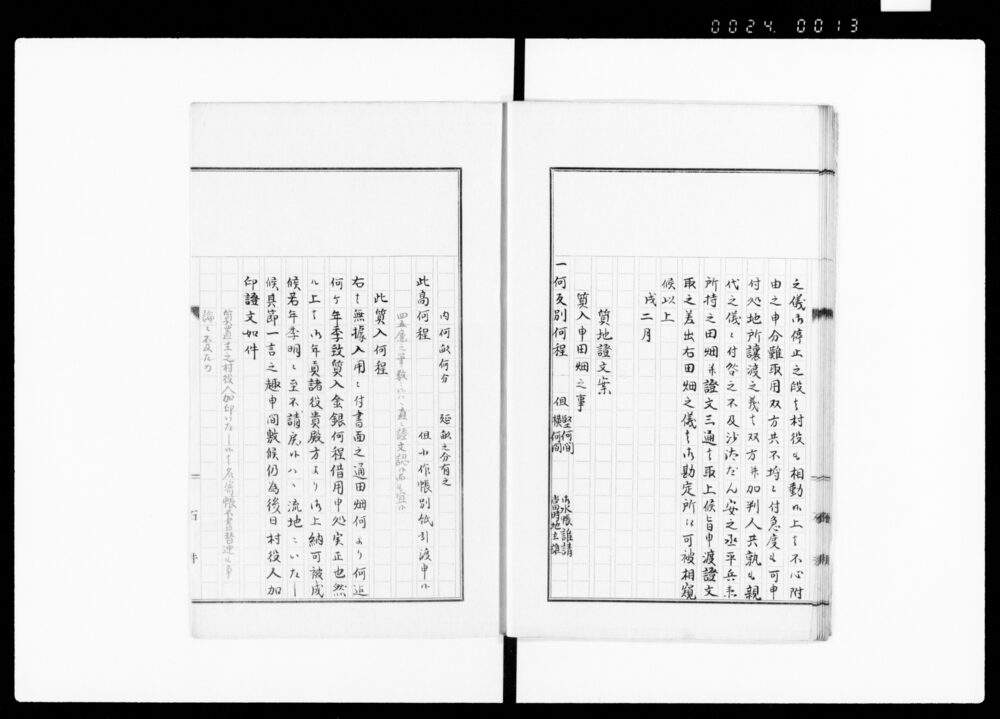 0024. 0013
之儀御停止之段者村役も相勤候上者不心附
由之申分難取用双方共不埒ニ付急度も可申
付処地所譲渡之義者双方并加判人共孰も親
代之儀ニ付咎之不及沙汰だん安之丞平兵衛
所持之田畑并證文三通者取上候旨申渡證文
取之差出右田畑之儀者御勘定所江可被相窺
候以上
戌二月
質地證文案
質入申田畑之事
一何反別何程 但 竪何間 横何間 御水帳誰請 当時地主誰
内何畝何分 延畝之分有之
此高何程 但小作帳別紙引渡申候
此質入何程
右者無據入用ニ付書面之通田畑何より何迄
何ケ年季致質入金銀何程借用申処実正也然
ル上者御年貢諸役貴殿方より御上納可被成
候若年季明ニ至不請戻候ハヽ流地ニいたし
候其節一言之趣申間敷候仍為後日村役人加
印證文如件
質置主之村役人加印
論ニ不及ため